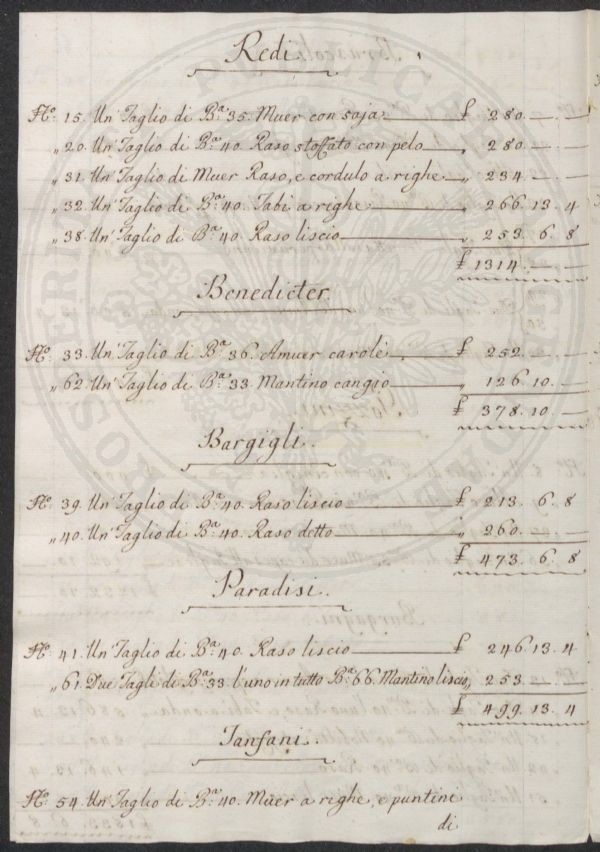 Redi.
No: 15. Un' Taglio di Ba: 35. Muer con soja £ 280. — —
„ 20. Un' Taglio di Ba: 40. Raso stoffato con pelo „ 280. — —
„ 31. Un' Taglio di Muer Raso, e cordulo a righe „ 234. — —
„ 32. Un' Taglio di Ba: 40. Tabi a righe „ 266. 13. 4
„ 38. Un' Taglio di Ba: 40. Raso liscio „ 253. 6. 8
£ 1314. — —
Benedicter.
No: 33. Un' Taglio di Ba: 36. Amuer carolè £ 252. — —
„ 62. Un' Taglio di Ba: 33. Mantino cangio „ 126. 10. —
£ 378. 10. —
Bargigli.
No: 39. Un' Taglio di Ba: 40. Raso liscio £ 213. 6. 8
„ 40. Un' Taglio di Ba: 40. Raso detto „ 260. — —
£ 473. 6. 8
Paradisi.
No: 41. Un' Taglio di Ba: 40. Raso liscio £ 246. 13. 4
„ 61. Due Tagli di Ba: 33 l'uno in tutto Ba: 66. Mantino liscio „ 253. — —
£ 499. 13. 4
Tanfani.
No: 54. Un' Taglio di Ba: 40. Muer a righe, e puntini
di